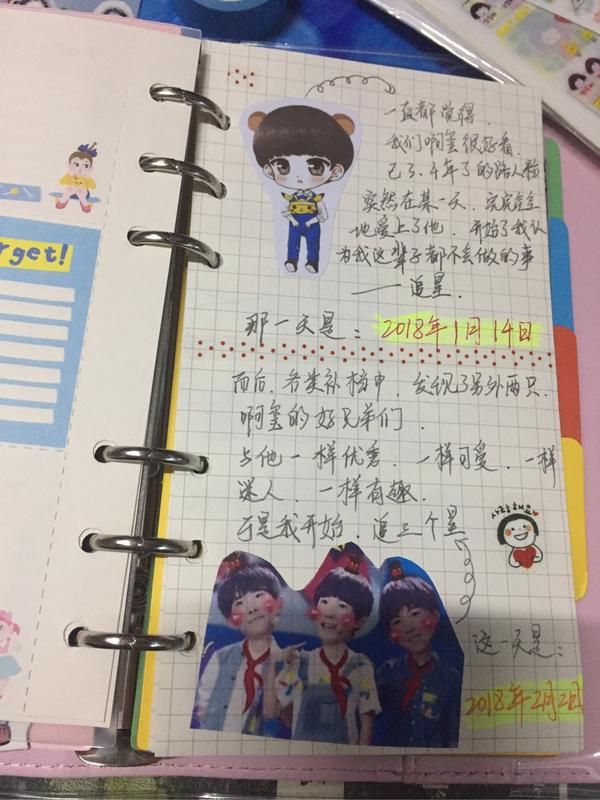 rget!
一直都觉得,
我们啊玺很好看.
已3、4年了的路人粉
突然在某一天,完完全全
地爱上了他,开始了我认
为我这辈子都不会做的事
——追星.
那一天是:2018年1月14日
而后,各类补档中,发现了另外两只,
啊玺的好兄弟们.
与他一样优秀,一样可爱,一样
迷人,一样有趣.
于是我开始 追三个星
사랑해요
这一天是:
2018年2月2日